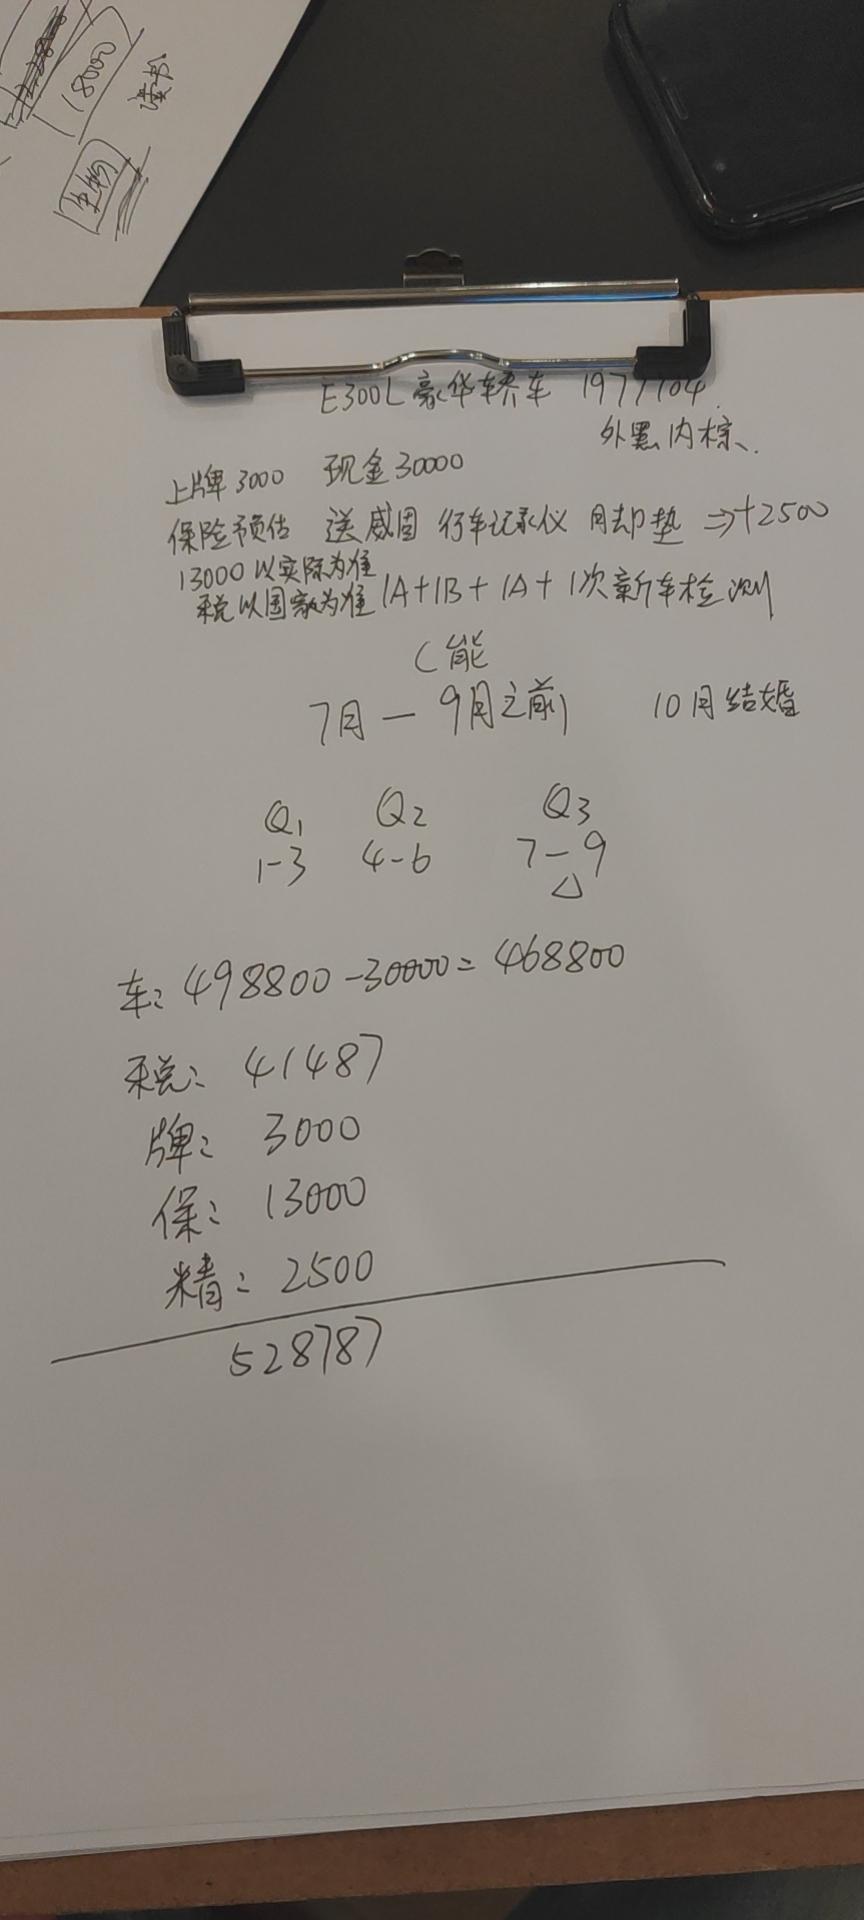 18000
读书
E300L豪华轿车 1977104
外黑内棕、
上牌3000 现金30000
保险预估 送威固 行车记录仪 月却垫 ⇒+2500
13000以实际为准
税以国家为准 1A+1B+1A+1次新车检测
C能
7月—9月之前 10月结婚
Q1 Q2 Q3
1-3 4-6 7-9
△
车: 498800-30000=468800
税: 41487
牌: 3000
保: 13000
精: 2500
528787